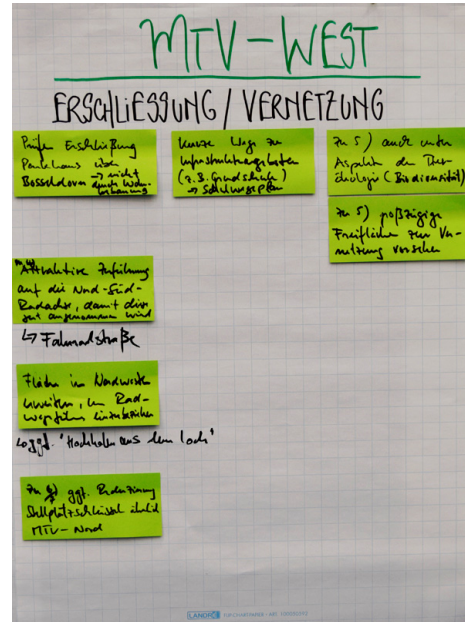 MTV-WEST
ERSCHLIESSUNG / VERNETZUNG
Prüfen Erschließung
Parkhaus über
Bosseldorn → nicht
durch Wohn-
bebauung
Kurze Wege zu
Infrastrukturangeboten
(z.B. Grundschule)
→ Schulwegeplan
zu 5) auch unter
Aspekten der
ökologie (Biodiversität)
zu 5) großzügige
Freifläche zur Ver-
netzung vorsehen
Attraktive Zuführung
auf die Nord-Süd-
Radachse, damit diese
gut angenommen wird
↳ Fahrradstraße
Fläche im Nordwesten
erweitern, um Rad-
wegeführung einzubeziehen
↳ ggf. "Hochholen aus dem Loch"
zu ggf. Reduzierung
Stellplatzschlüssel ähnlich
MTV-Nord
LANDRÉ